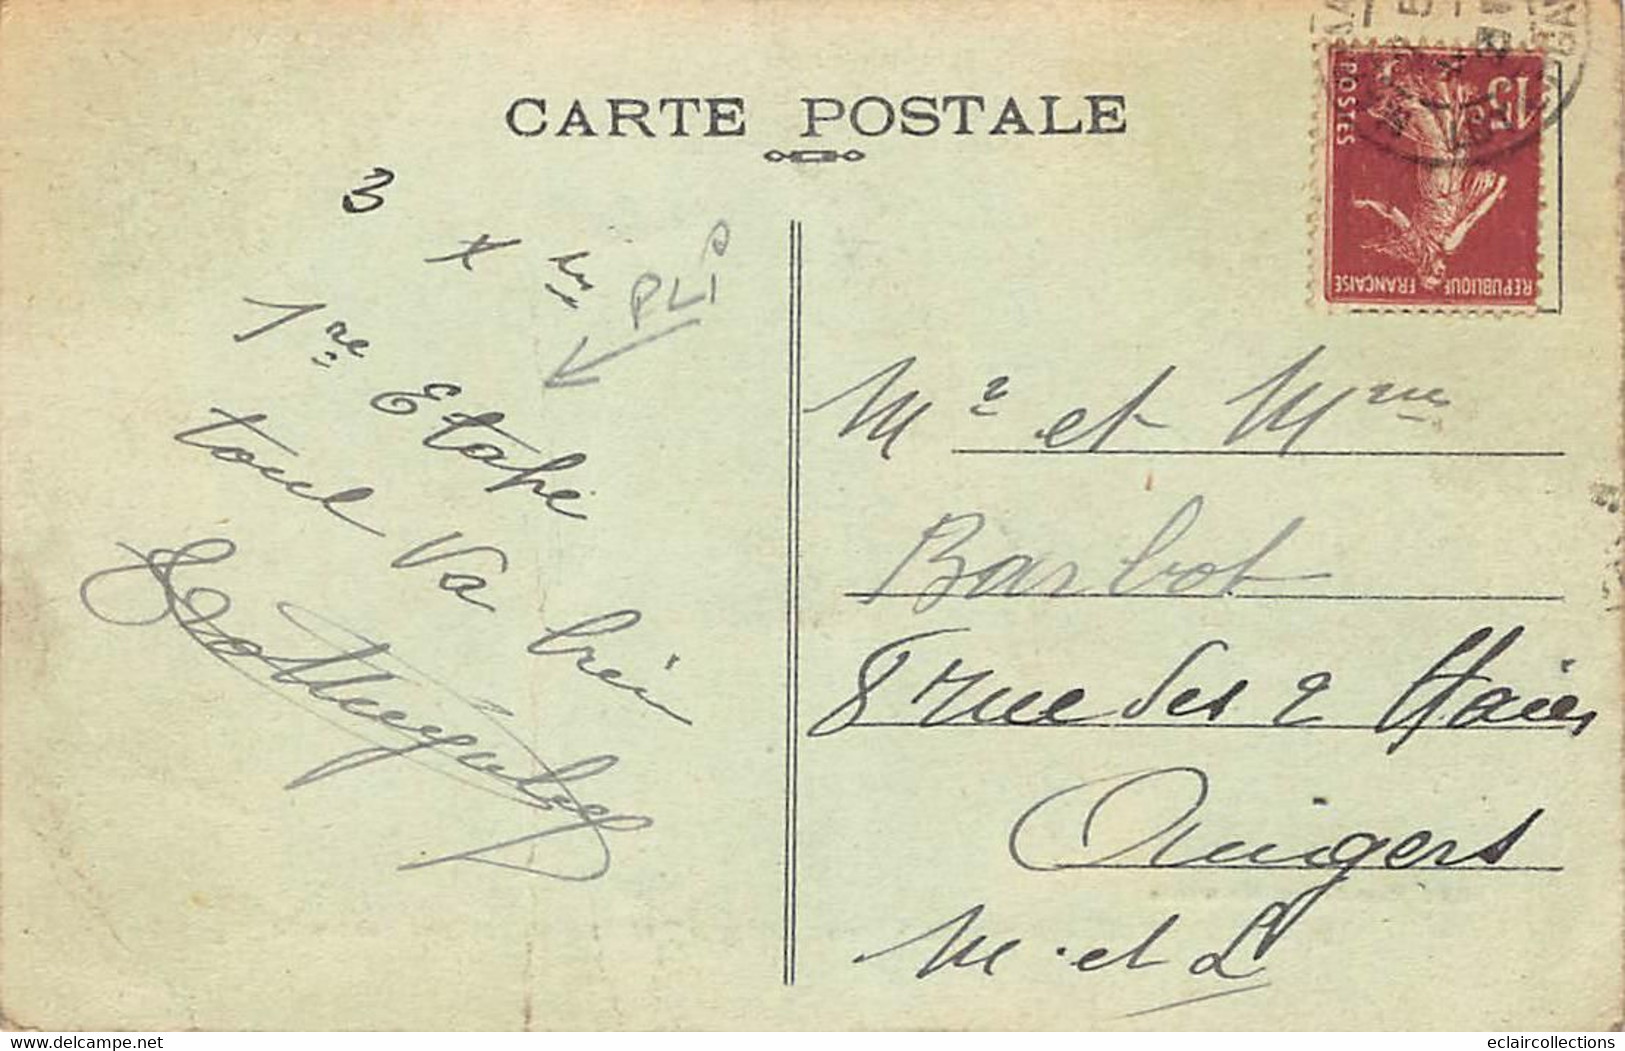 CARTE POSTALE
3
X bre
1re Etape
tout va bien
PLI
POSTES
15c
REPUBLIQUE FRANÇAISE
Mr et Mme
Barbot
8 rue des 2 Haies
Angers
M. et L
delcampe.net
eclaircollections